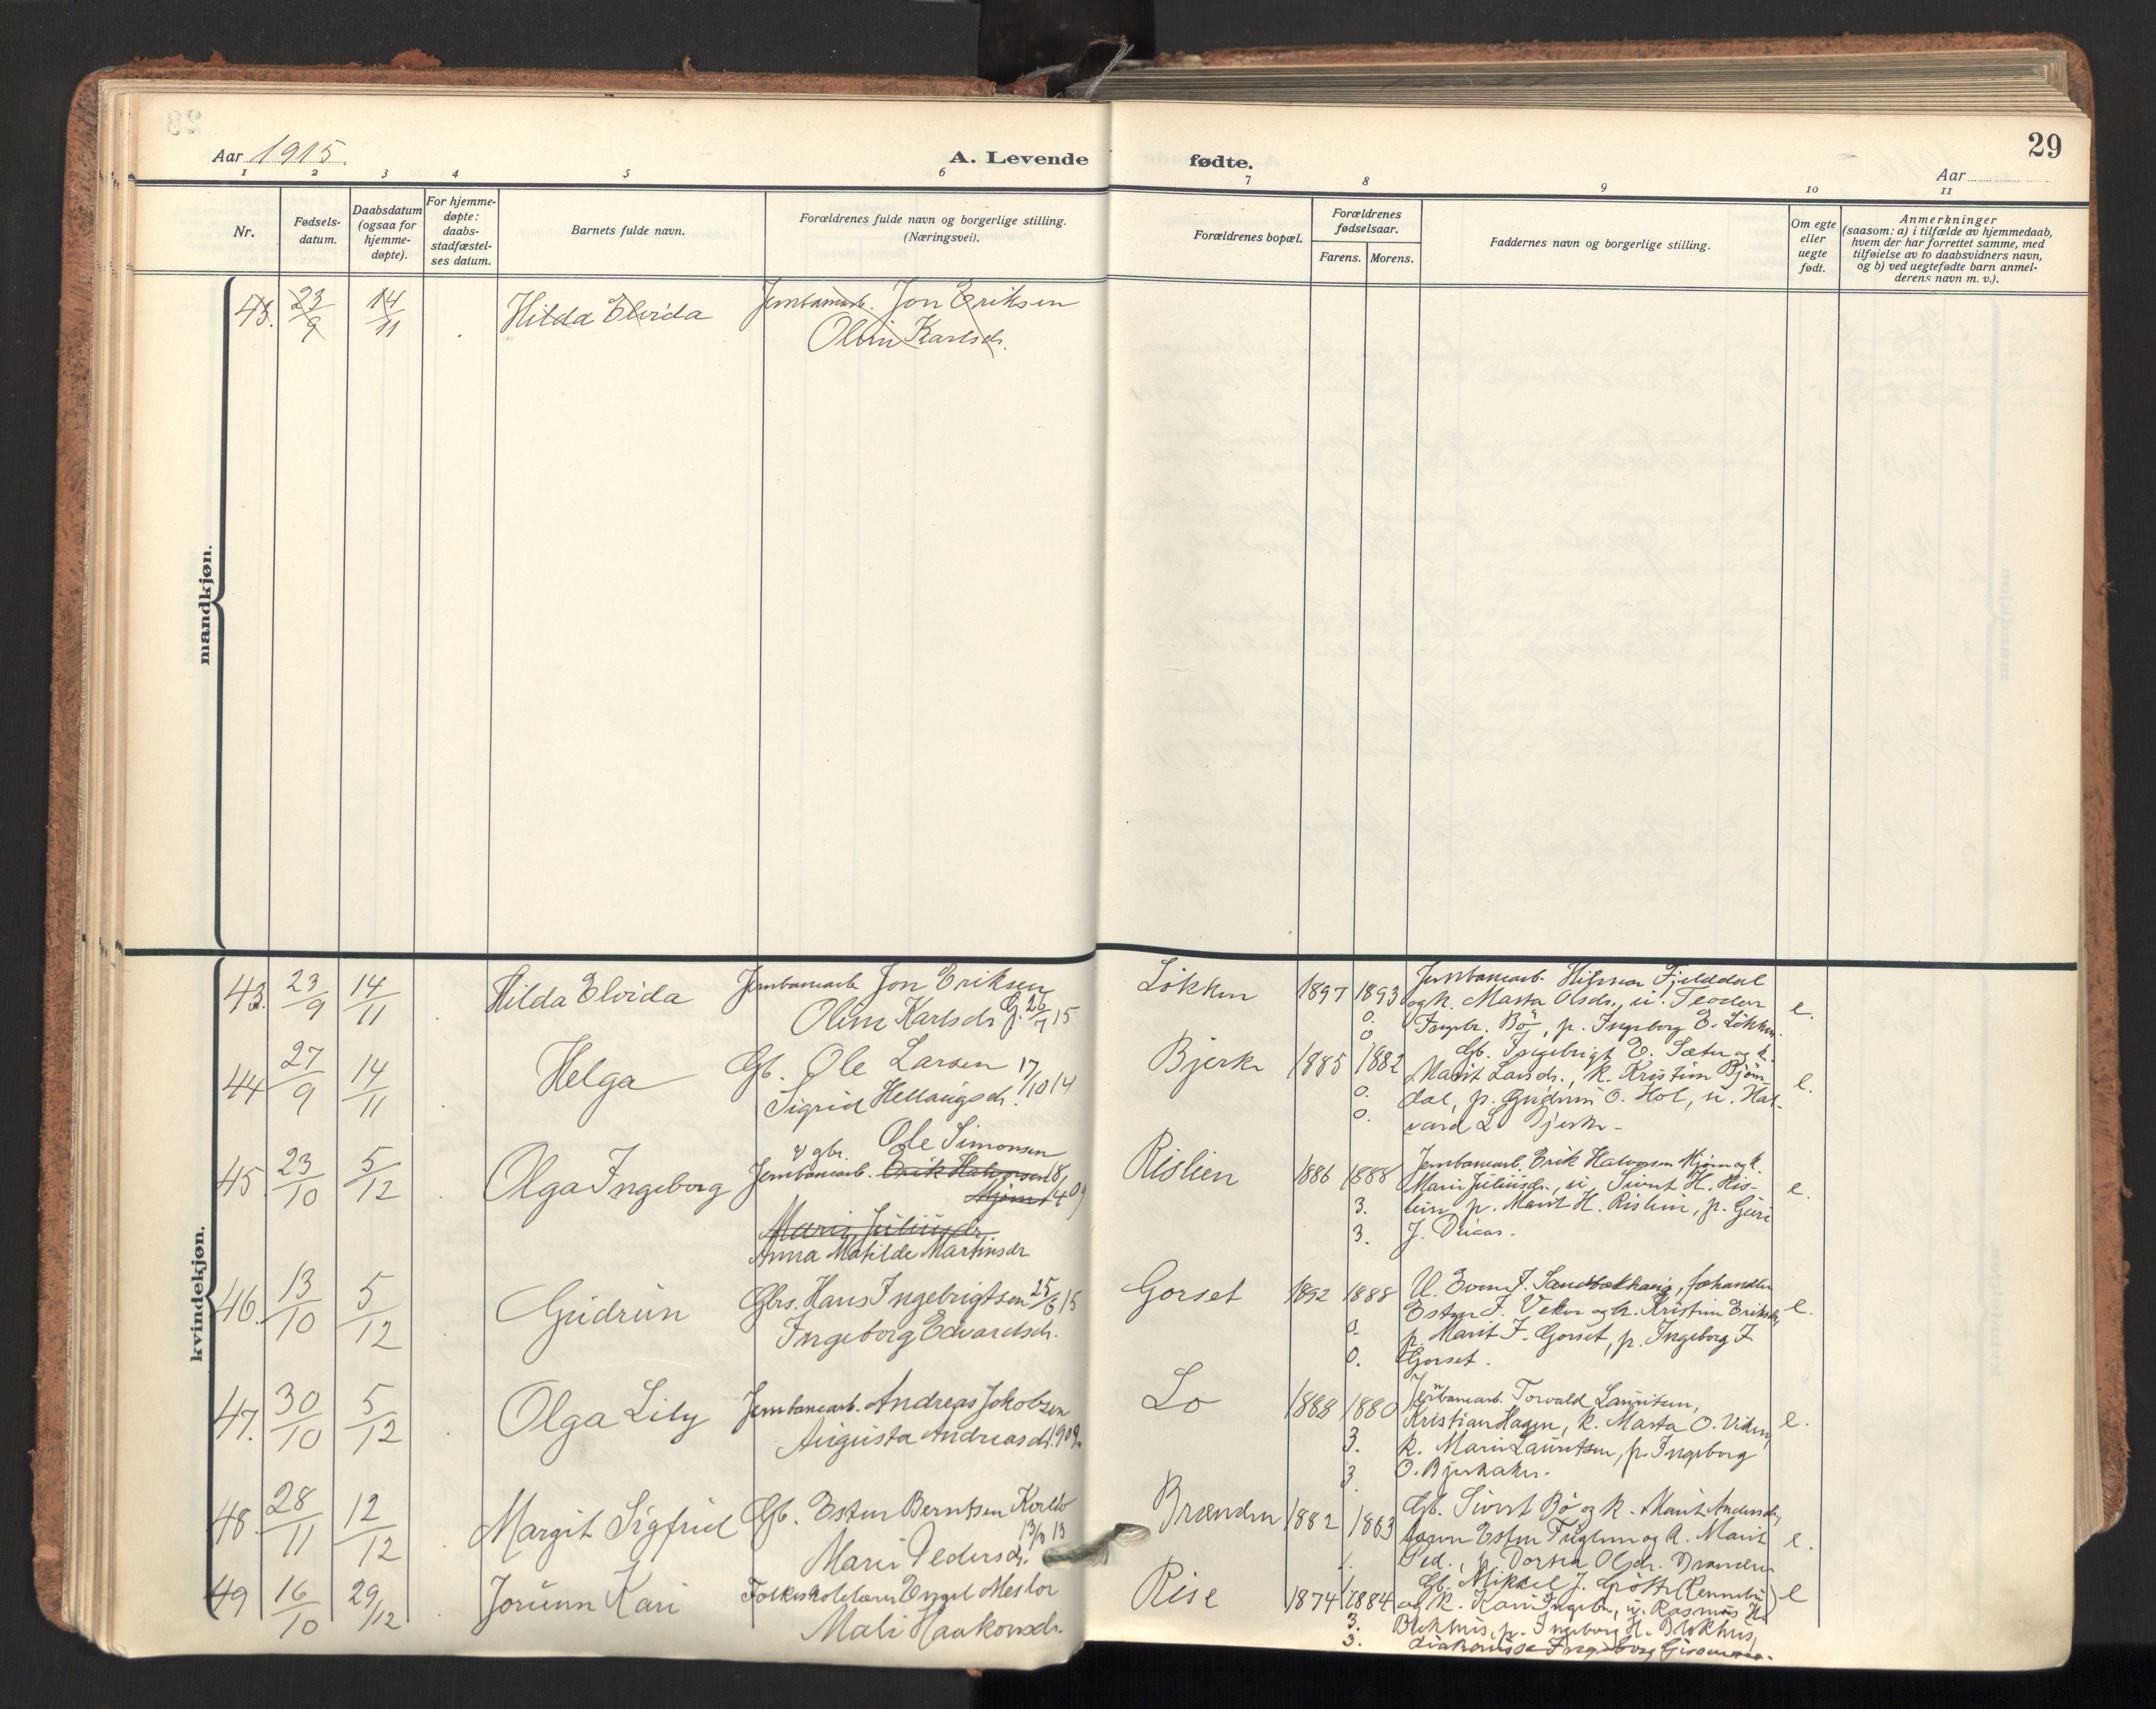 29
Aar 1915.
A. Levende
fødte.
Aar
1 2 3 4 5 6 7 8 9 10 11
Nr.
Fødsels-
datum.
Daabsdatum
(ogsaa for
hjemme-
døpte).
For hjemme-
døpte:
daabs-
stadfæstel-
ses datum.
Barnets fulde navn.
Forældrenes fulde navn og borgerlige stilling.
(Næringsvei).
Forældrenes bopæl.
Forældrenes
fødselsaar.
Farens. Morens.
Faddernes navn og borgerlige stilling.
Om egte
eller
uegte
født.
Anmerkninger
(saasom: a) i tilfælde av hjemmedaab,
hvem der har forrettet samme, med
tilføielse av to daabsvidners navn,
og b) ved uegtefødte barn anmel-
derens navn m. v.).
mandkjøn.
43. 23/9 14/11 Hilda Elvida Jernbanearb. Jon Eriksen
Oline Karlsdr.
kvindekjøn.
43. 23/9 14/11 Hilda Elvida Jernbanearb. Jon Eriksen
Oline Karlsdr. G. 26/7 15
Løkken 1897 1893 Jernbanearb. Hilmar Fjelddal
og k. Marta Olsdr., u. Teodor e.
0. Ingebr. Bö, p. Ingeborg E. Løkken.
0
44 27/9 14/11 Helga Gb. Ole Larsen 17/10 14
Sigrid Hellaugsdr.
Bjerke 1885 1882 Gb. Ingebrigt E. Sæter og k.
Marit Larsdr., k. Kristine Bjørn- e.
0. dal, p. Gudrun O. Hol, u. Hal-
0. vard L. Bjerke.
45. 23/10 5/12 Olga Ingeborg v gbr. Ole Simonsen
Jernbanearb. Erik Halvorsen 18/4 09
Mjøen
Marie Juliusdr.
Anna Matilde Martinsdr
Rislien 1886 1888 Jernbanearb. Erik Halvorsen Mjøen og k.
Marie Juliusdr., u. Sivert H. Ris- e.
3. lien p. Marit H. Rislien, p. Guri
3. J.
46. 13/10 5/12 Gudrun Gbrs. Hans Ingebrigtsen 25/6 15
Ingeborg Edvardsdr.
Gorset 1892 1888 U. Even J. Sandbækhaug, fæhandler
Esten J. og k. Kristine Eriksdr, e.
0. p. Marit J. Gorset, p. Ingeborg J.
0. Gorset.
47. 30/10 5/12 Olga Lily Jernbanearb. Andreas Jakobsen
Augusta Andreasdr. 1909.
Lo 1888 1880 Jernbanearb. Torvald Lauritsen,
Kristian Hagen, k. Marta O. e.
3. k. Marie Lauritsen, p. Ingeborg
3 O. Bjerkaker.
48. 28/11 12/12 Margit Sigfrid Gb. Esten Berntsen
Marie Pedersdr. 13/ 13
Brænden 1882 1883 Gb. Sivert Bö og k. Marit Andersdr.,
Esten Fuglem og k. Marit e.
1. Ped., p. Dortea Olsdr. Brænden
49 16/10 29/12 Jorunn Kari Folkeskolelærer Engel Meslo
Mali Haakonsdr.
Rise 1874 1884 Gb. Mikael J. Grötte (Rennebu) e
og k. Kari Ingebr., u. Rasmus H.
3. Blokhus, p. Ingeborg H. Blokhus,
3. diakonisse Ingeborg